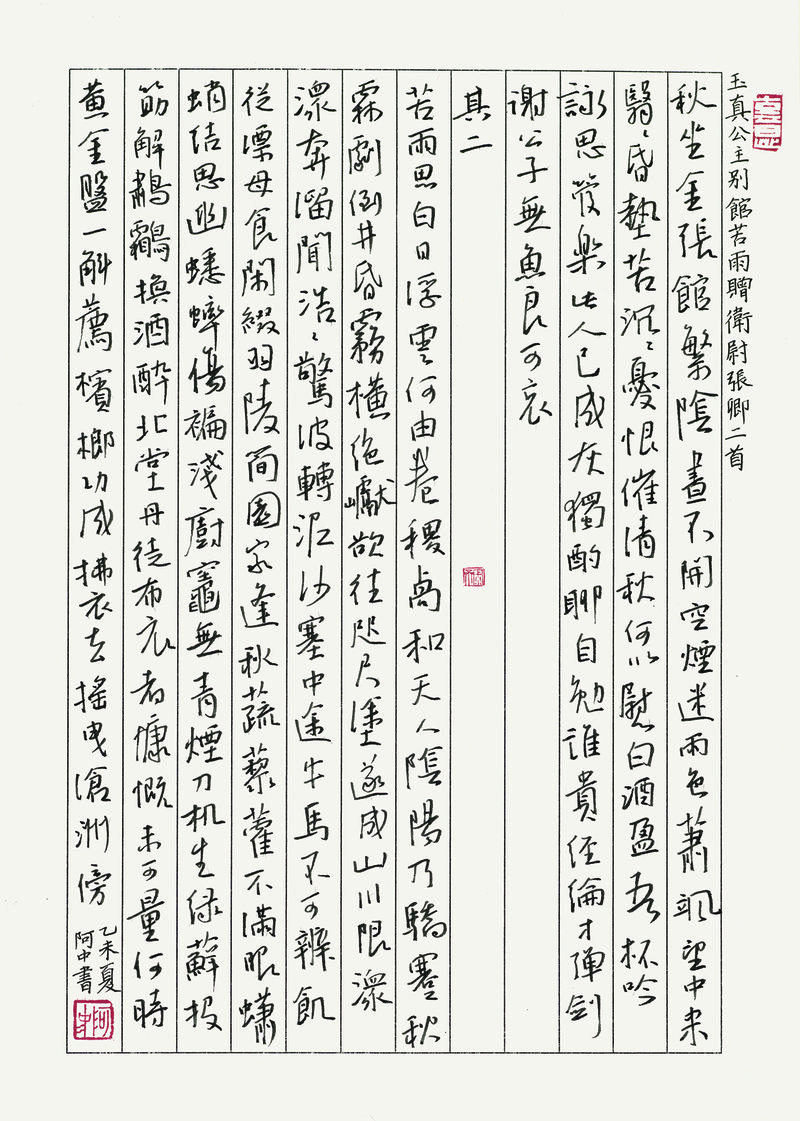 玉真公主别館苦雨贈衛尉張卿二首
秋坐金張館繁陰晝不開空煙迷雨色蕭颯望中来
翳〻昏墊苦沉〻憂恨催清秋何以慰白酒盈吾杯吟
詠思管樂此人已成灰獨酌聊自勉誰貴經綸才彈劍
謝公子無魚良可哀
其二
苦雨思白日浮雲何由卷稷卨和天人陰陽乃驕蹇秋
霖劇倒井昏霧橫絕巘欲往咫尺塗遂成山川限潨
潨奔溜聞浩〻驚波轉泥沙塞中途牛馬不可辨飢
從漂母食閑綴羽陵簡園家逢秋蔬藜藿不滿眼蠨
蛸結思幽蟋蟀傷褊淺廚竈無青煙刀机生綠蘚投
筯解鷫鸘換酒醉北堂丹徒布衣者慷慨未可量何時
黄金盤一斛薦檳榔功成拂衣去搖曳滄洲傍
乙未夏
阿中書